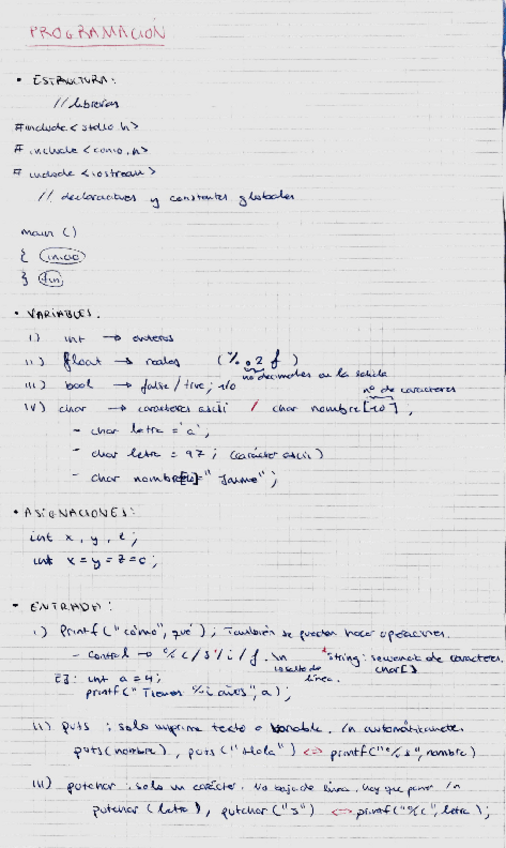 PROGRAMACIÓN
• ESTRUCTURA:
// librerías
#include <stdio.h>
# include <conio.h>
# include <iostream>
// declarativas y constantes globales
main ()
{ inicio
} fin
• VARIABLES.
i) int → enteros
ii) float → reales (%.2f)
nº decimales en la salida
iii) bool → false/true; 1/0
nº de caracteres
iv) char → caracteres ascii / char nombre[10],
- char letra = 'a';
- char letra = 97; (carácter ascii)
- char nombre = "Jaime";
• ASIGNACIONES:
int x, y, z;
int x=y=z=0;
• ENTRADA:
i) Printf("cómo", qué); También se pueden hacer operaciones.
- Control → %c/s/i/f. \n *string: secuencia de caracteres.
↳ salto de línea. char[]
EJ: int a = 4;
printf("Tienes %i años", a);
ii) puts : solo imprime texto o variable. \n automáticamente.
puts(nombre), puts("Hola") <=> printf("%s", nombre)
iii) putchar : solo un carácter. No baja de línea. hay que poner \n
putchar (letra), putchar("s") <=> printf("%c", letra);